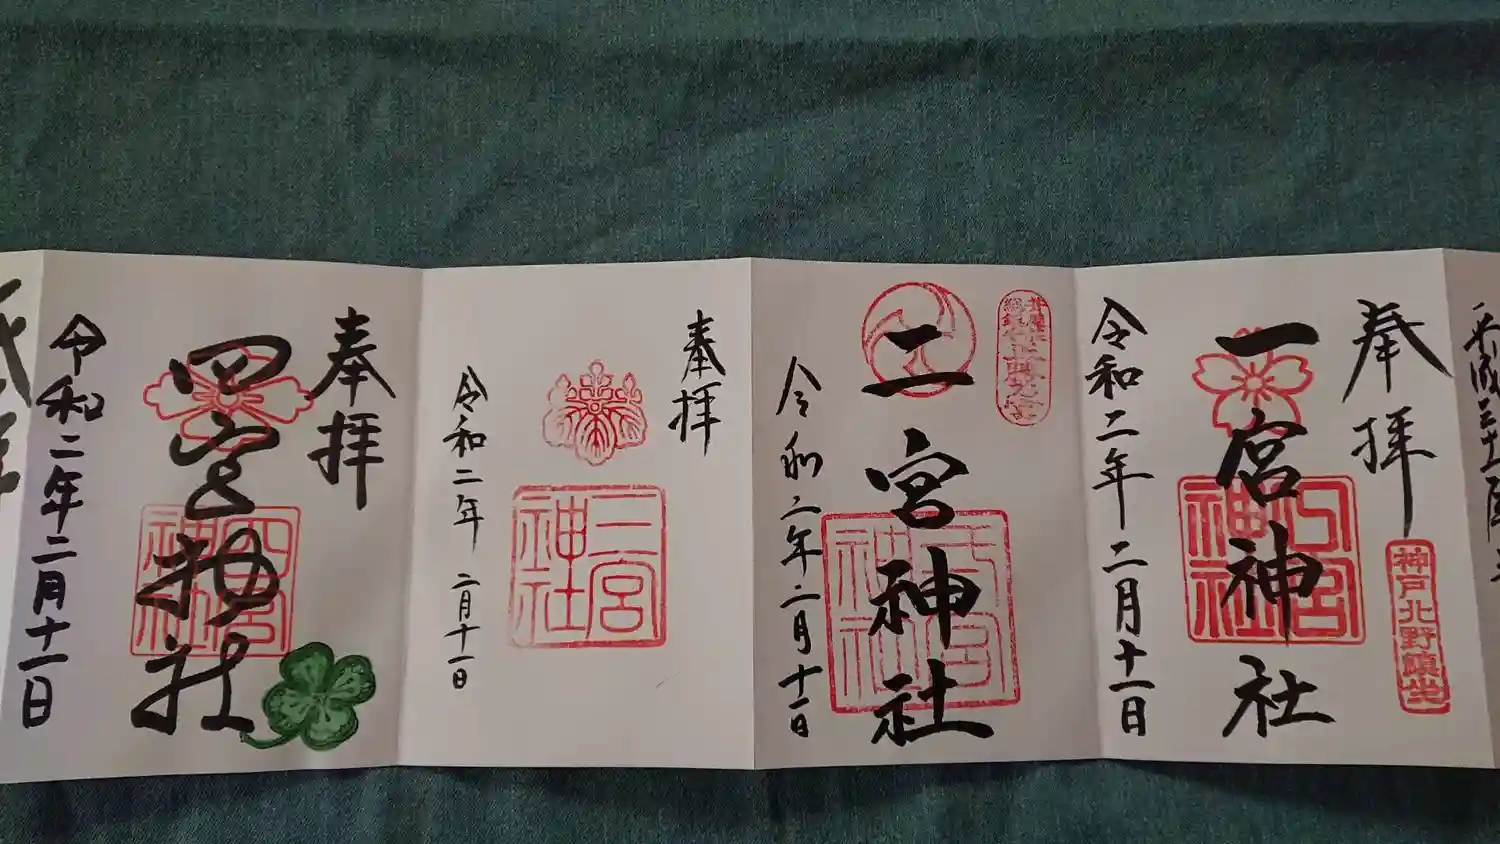 奉拝
一宮神社
神戸北野鎮坐
一宮神社
令和二年二月十一日
二宮神社
令和二年二月十一日
奉拝
三宮神社
令和二年二月十一日
奉拝
四宮神社
四宮神社
令和二年二月十一日